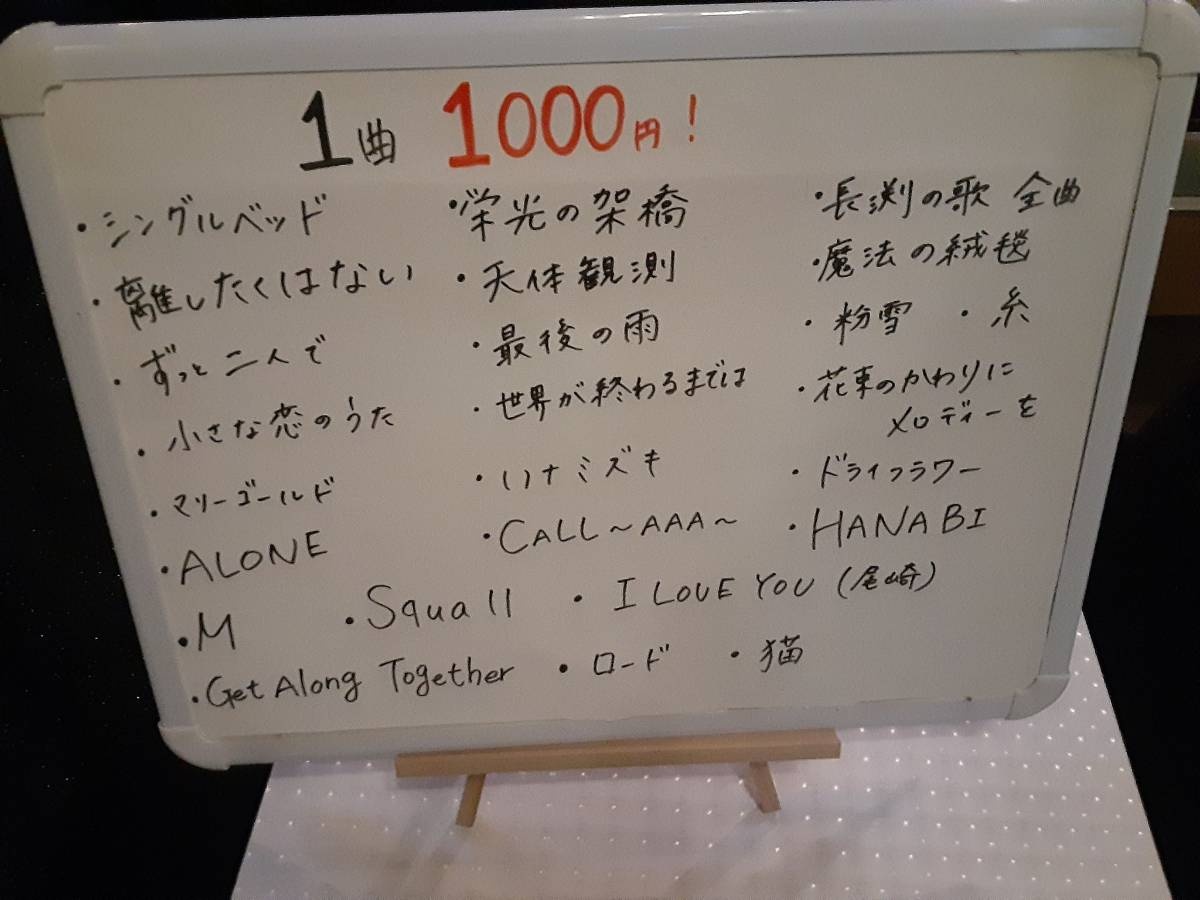 1曲 1000円！
・シングルベッド ・栄光の架橋 ・長渕の歌 全曲
・離したくはない ・天体観測 ・魔法の絨毯
・ずっと二人で ・最後の雨 ・粉雪 ・糸
・小さな恋のうた ・世界が終わるまでは ・花束のかわりに
メロディーを
・マリーゴールド ・ハナミズキ ・ドライフラワー
・ALONE ・CALL～AAA～ ・HANABI
・M ・Squall ・I LOVE YOU (尾崎)
・Get Along Together ・ロード ・猫